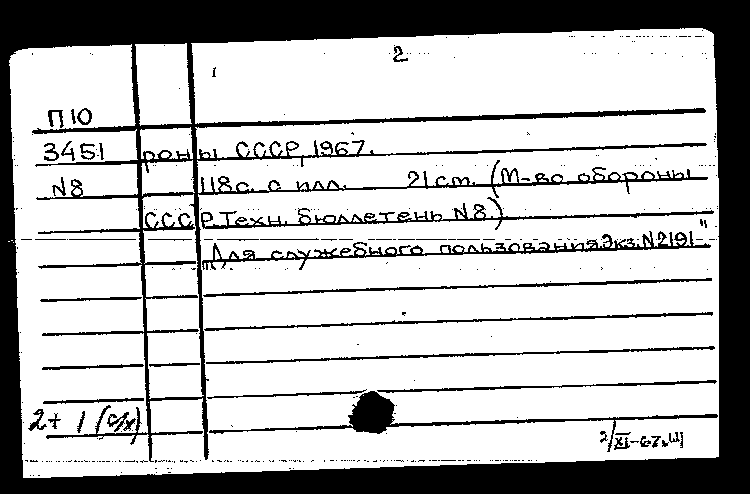 2
П10
3451 роны СССР, 1967.
N8 118с. с илл. 21см. (М-во обороны
СССР. Техн. бюллетень N8.)
"Для служебного пользования. Экз. N2191"
2+1 (с/х)
2/XI-67.